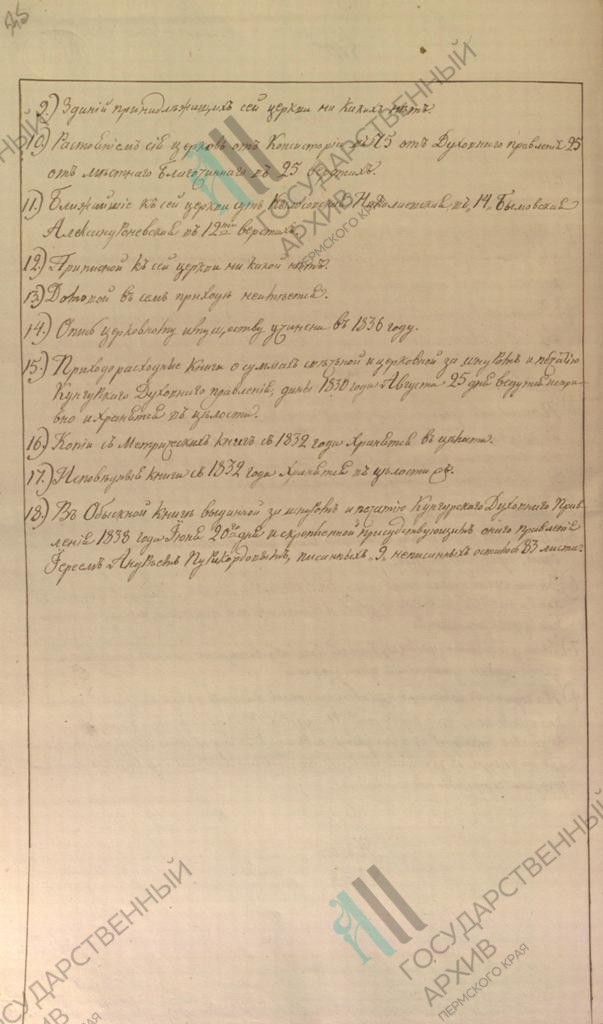 25
9.) Зданій принадлѣжащихъ сей церкви ни какихъ нѣтъ.
10) Растоянiемъ сiя церковь отъ Консисторiи въ 75 отъ Духовнаго правленiя 25
отъ мѣстнаго Благочиннаго въ 25 верстахъ.
11.) Ближайшiе къ сей церкви суть Николаевская въ 14, Бымовская
Александроневская въ 12ти верстахъ.
12) Приписной къ сей церкви ни какой нѣтъ.
13) Домовой въ семъ приходѣ неимѣется.
14.) Опись церковному имуществу учинена въ 1836 году.
15.) Приходорасходные книги о суммахъ свѣчной и церковной за шнуромъ и печатiю
Кунгурскаго Духовнаго правленiя, даны 1830 года Августа 25 дня ведутся
и хранятся въ цѣлости.
16) Копiи съ Метрическихъ книгъ съ 1832 года хранятся въ цѣлости.
17.) Исповѣдныя книги съ 1832 года хранятся въ цѣлости
18.) Въ Обыскной книгѣ выданной за шнуромъ и печатiю Кунгурскаго Духовнаго Прав-
ленiя 1838 года Iюня 20го дня и скрѣпленной присудствующимъ онаго правленiя
Iереемъ Андреемъ писанныхъ 9, неписанныхъ осталось 83 листа.
ГОСУДАРСТВЕННЫЙ
АРХИВ
ПЕРМСКОГО КРАЯ
ГОСУДАРСТВЕННЫЙ
АРХИВ
ПЕРМСКОГО КРАЯ
ГОСУДАРСТВЕННЫЙ